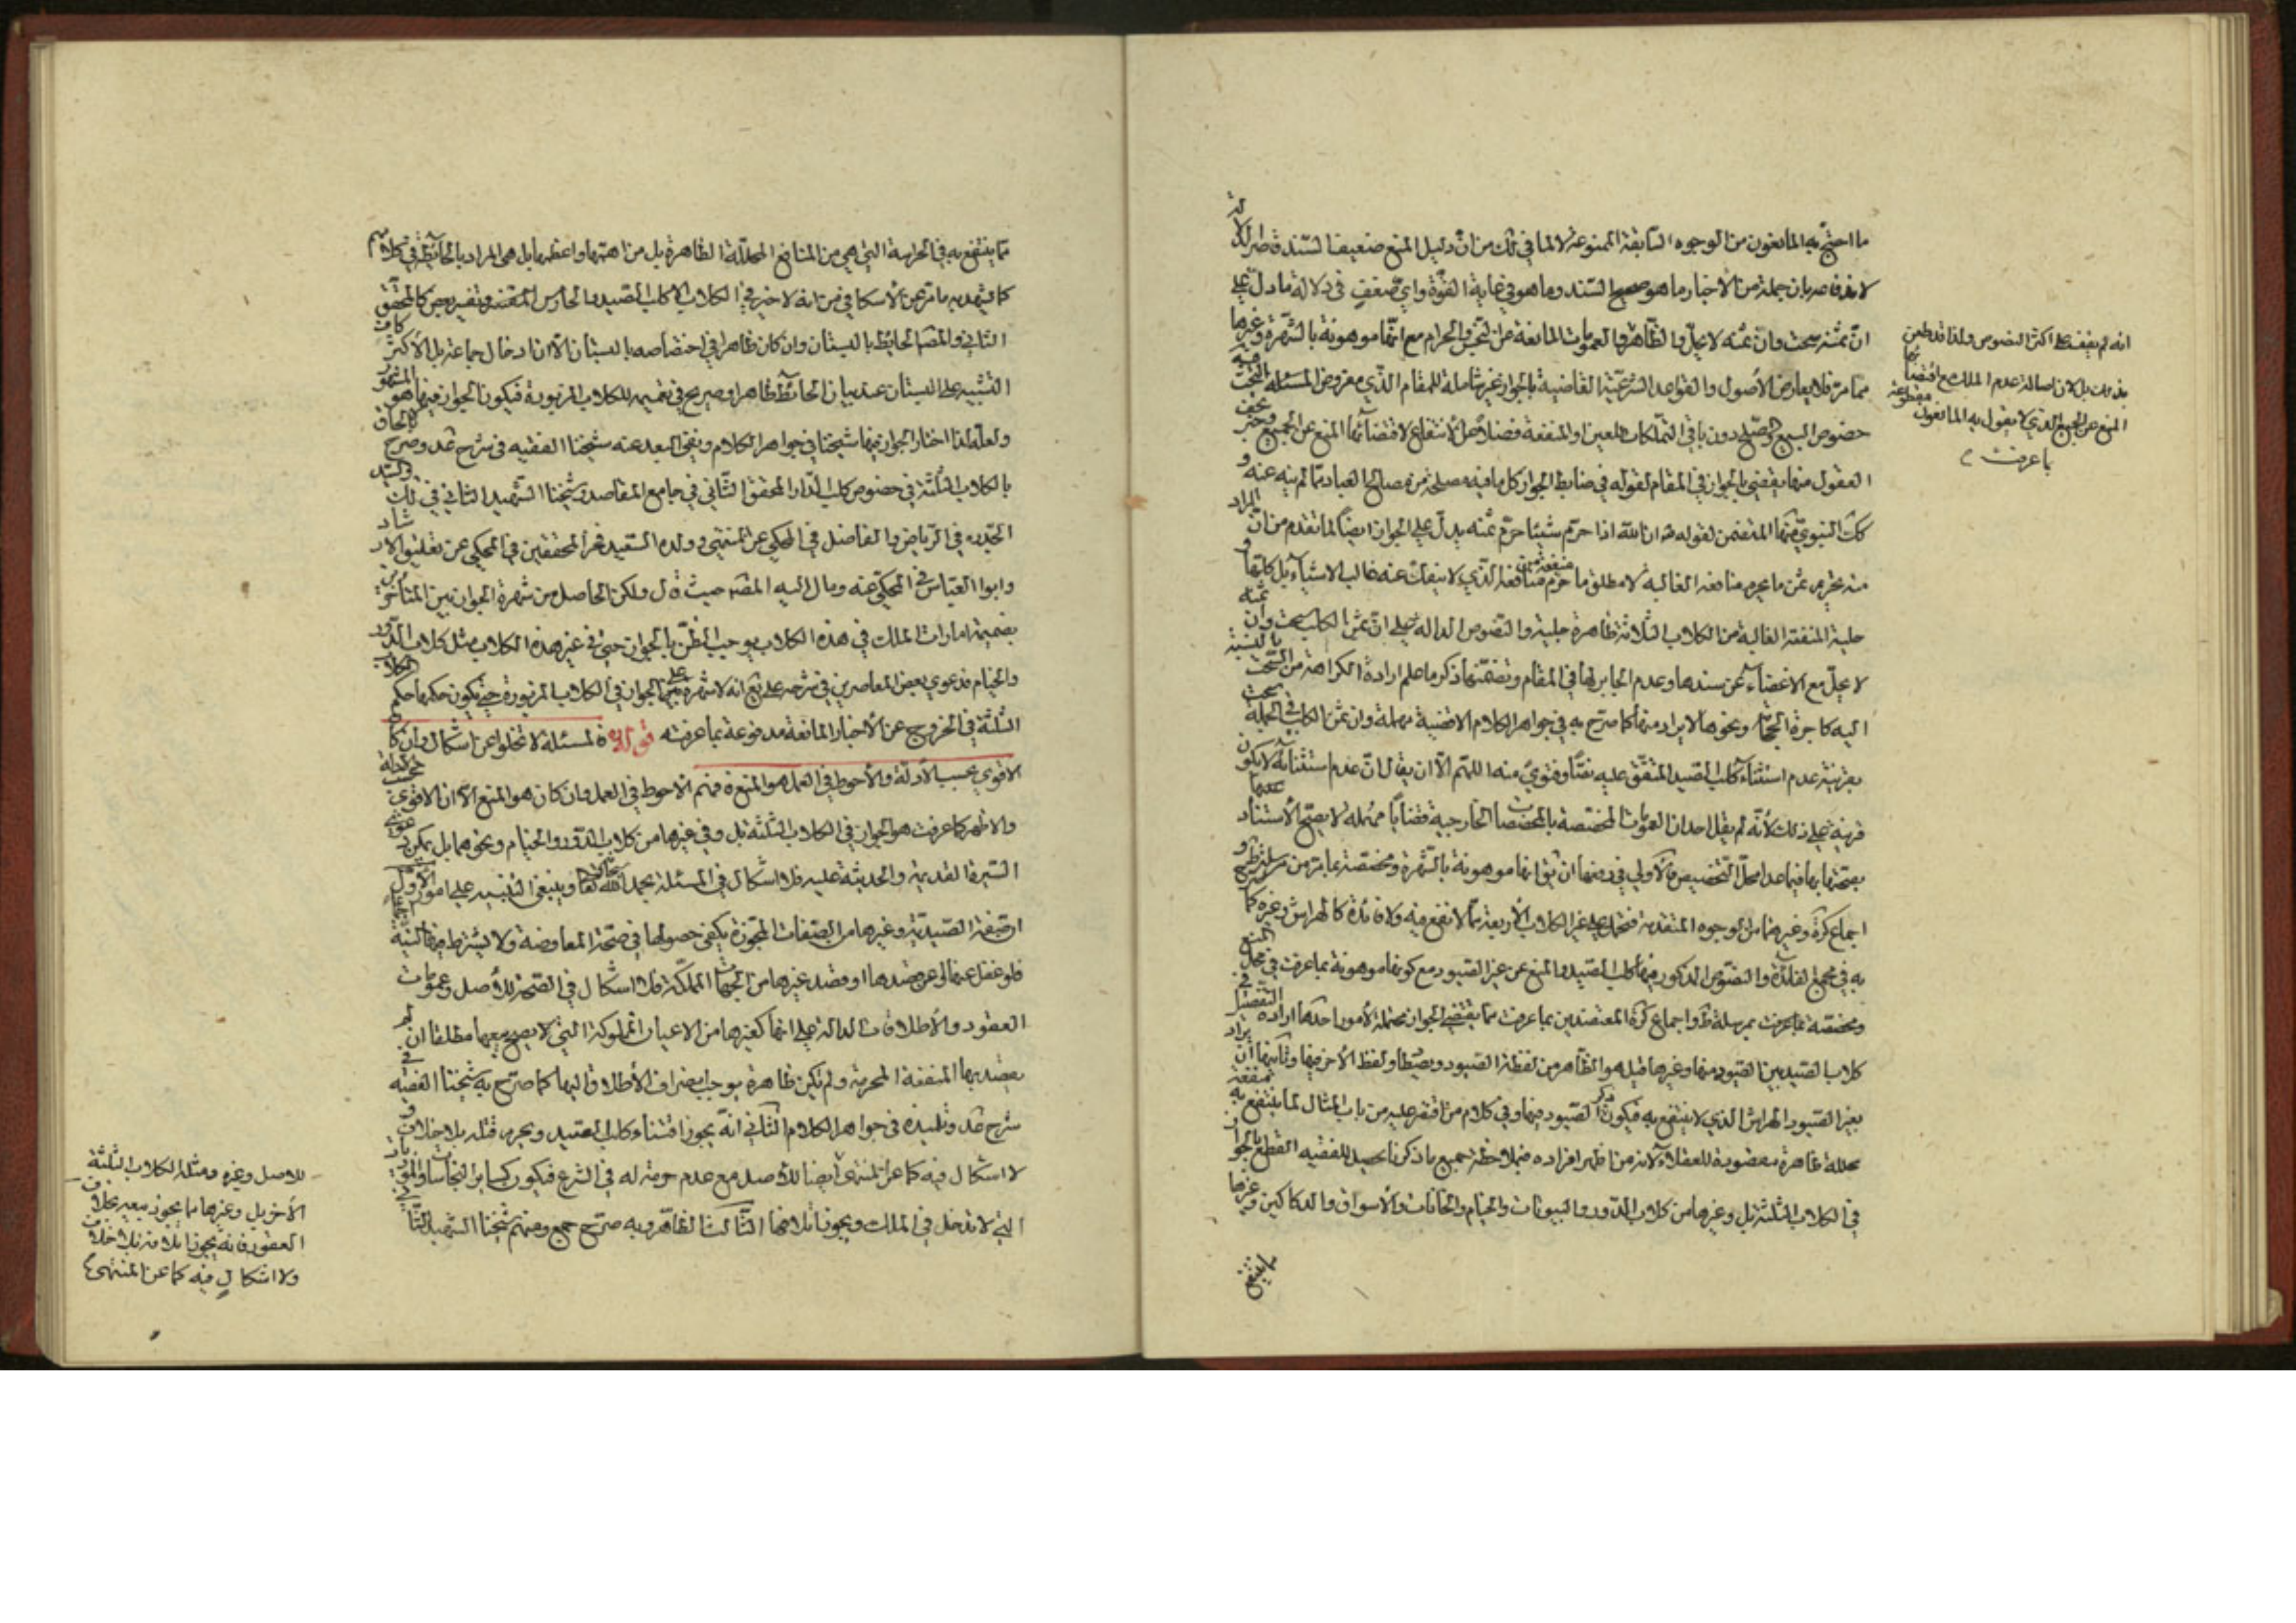 ما احتج به المانعون من الوجوه السابقة الممنوعة لا لما في ذلك من ان دليل المنع ضعيف السند
بان جملة من الاخبار ما هو صحيح السند وما هو في غاية القوة واي ضعف في دلالة ما دل على
ان ثمنه سحت وان ثمنه لا يحل والظاهر والعمومات المانعة عن النجس والحرام مع انها موهونة بالشهرة وغيرها
مما مر فلا يعارض الأصول والقواعد الشرعية القاضية بالجواز غير شاملة للمقام الذي مفروض المسئلة فيه البحث
خصوص البيع والصلح دون باقي التملكات للعين او المنفعة فضلا عن الانتفاع لاقتضائها المنع عن الجميع وخبر تحف
العقول منها يقضي بالجواز في المقام لقوله في ضابط الجواز كل ما فيه مصلحة من مصالح العباد مما لم ينه عنه و
كك النبوي منها المتضمن لقوله ان الله اذا حرم شيئا حرم ثمنه يدل على الجواز ايضا لما تقدم من ان المراد
منه تحريم ثمن ما يحرم منافعه الغالبة لا مطلق ما حرم منافعه الذي لا ينفك عنه غالب الاشياء بل كلها و
حلية المنفعة الغالبة من الكلاب الثلاثة ظاهرة جلية والنصوص الدالة على ان ثمن الكلب سحت وان ثمنه
لا يحل مع الاغضاء عن سندها وعدم الجابر لها في المقام وتضمنها ذكر ما علم ارادة الكراهة من السحت بالنسبة
اليه كاجرة الحجام ونحوها لا يراد منها كما صرح به في جواهر الكلام الا قضية مهملة وان ثمن الكلب في الجملة سحت
بقرينة عدم استثناء كلب الصيد المتفق عليه نصا وفتوى منه اللهم الا ان يقال ان عدم استثنائه لا يكون
قرينة على ذلك لأنه لم يقل احد ان العمومات المختصة بالمخصصات الخارجية قضايا مهملة لا يصح الاستناد
بعمومها فيما عدا محل التخصيص فالأولى في دفعها ان يقال انها موهونة بالشهرة ومختصة بما مر من مرسلة
اجماع كرة وغيرهما من الوجوه المتقدمة فتحمل على غير الكلاب الأربعة مما لا نفع فيه ولا فائدة كالهراش وغيره كما
به في مجمع الفائدة والنصوص المذكور فيها كلب الصيد والمنع عن غير الصيود مع كونها موهونة بما عرفت في محل المنع
ومختصة بما عرفت بمرسلة ط واجماع كرة المعتضدين بما عرفت مما يقتضي الجواز محتملة لأمور احدها ارادة التفصيل في
كلاب الصيد بين الصيود منها وغيرها قيل هو الظاهر من لفظة الصيود ويصطاد ولفظ الأخر فيها وثانيها ان يراد
بغير الصيود الهراش الذي لا ينتفع به فيكون ذكر الصيود فيها وفي كلام من اقتصر عليه من باب المثال لما ينتفع به بمنفعة
محللة ظاهرة مقصودة للعقلاء لأنه من اظهر افراده فبملاحظة جميع ما ذكرنا يحصل للفقيه القطع بالجواز
في الكلاب الثلثة بل وغيرها من كلاب الدور والبيوتات والخيام والخانات والأسواق والدكاكين وغيرها
انه لم يقف على اكثر النصوص ولذا قد طعن
بذلك بل لان اصالة عدم الملك مع اقتضائها
المنع عن الجميع الذي لا يقول به المانعون مقطوعة
بما عرفت
مما ينتفع به في الحراسة التي هي من المنافع المحللة الظاهرة بل من اهمها واعظمها بل هي المراد بالحائط في كلامهم
كما يشهد به ما مر عن الأسكافي من انه لا خير في الكلاب الا كلب الصيد والحارس وتفسير بعض كالمحقق
الثاني والمص الحائط بالبستان وان كان ظاهرا في اختصاصه بالبستان الا ان ادخال جماعة بل الأكثر كاف
التنبيه على البستان عند بيان الحائط ظاهر او صريح في تعميمه للكلاب المزبورة فيكون الجواز فيها هو المشهور
ولعله لذا اختار الجواز فيها شيخنا في جواهر الكلام ونفى البعد عنه شيخنا الفقيه في شرح عد وصرح بالحاق
بالكلاب الثلثة في خصوص كلب الدار المحقق الثاني في جامع المقاصد وشيخنا الشهيد الثاني في لك والسيد
الجد ره في الرياض والفاضل في المحكي عن المنتهى وولده السعيد فخر المحققين في المحكي عن تعليق الارشاد
وابو العباس في المحكي عنه ومال اليه المص حيث قال ولكن الحاصل من شهرة الجواز بين المتأخرين
بضميمة امارات الملك في هذه الكلاب يوجب الظن بالجواز حتى في غير هذه الكلاب مثل كلاب الدور
والخيام فدعوى بعض المعاصرين في شرحه على يع انه لا شهرة على الجواز في الكلاب المزبورة حتى يكون حكمها حكم الكلاب
الثلثة في الخروج عن الأخبار المانعة مدفوعة بما عرفته فالمسئلة لا تخلو عن اشكال وان كان
الاقوى بحسب الأدلة والأحوط في العمل هو المنع نعم الاحوط في العمل وان كان هو المنع الا ان الاقوى بحسب الادلة
والاظهر كما عرفت هو الجواز في الكلاب الثلثة بل وفي غيرها من كلاب الدور والخيام ونحوهما بل يمكن دعوى
السيرة القديمة والحديثة عليه فلا اشكال في المسئلة بحمد الله تعالى وينبغي التنبيه على امور الأول
ان صفة الصيدية وغيرها من الصفات المجوزة يكفي حصولها في صحة المعاوضة ولا يشترط فيها النية
فلو غفل عنها او عن قصدها او قصد غيرها من الجهات المملكة فلا اشكال في الصحة للأصل وعمومات
العقود والأطلاقات الدالة على انها كغيرها من الاعيان المملوكة التي لا يصح بيعها مطلقا ان لم
يقصد بها المنفعة المحرمة ولم تكن ظاهرة يوجب انصراف الأطلاق اليها كما صرح به شيخنا الفقيه في
شرح عد وتلميذه في جواهر الكلام الثاني انه يجوز اقتناء كلب الصيد ويحرم قتله بلا خلاف و
لا اشكال فيه كما عن المنتهى ايضا للأصل مع عدم حرمة له في الشرع فيكون كساير النجاسات والموذيات
التي لا تدخل في الملك ويجوز اتلافها الثالث الظاهر وبه صرح جمع ومنهم شيخنا الشهيد الثاني
للاصل وغيره ومثله الكلاب الثلثة
الأخر بل وغيرها مما يجوز بيعه بخلاف
العقور فانه يجوز اتلافه بلا خلاف
ولا اشكال فيه كما عن المنتهى